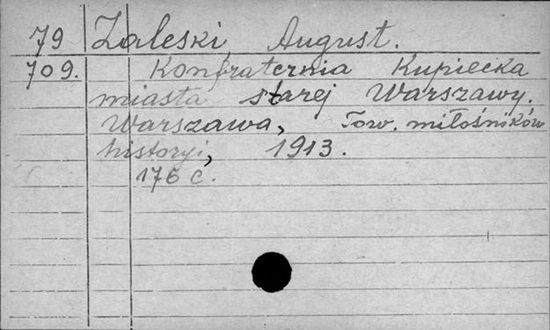 79 Zaleski, August.
709. Konfraternia Kupiecka
miasta starej Warszawy.
Warszawa, Tow. miłośników
historyi, 1913.
176 c.